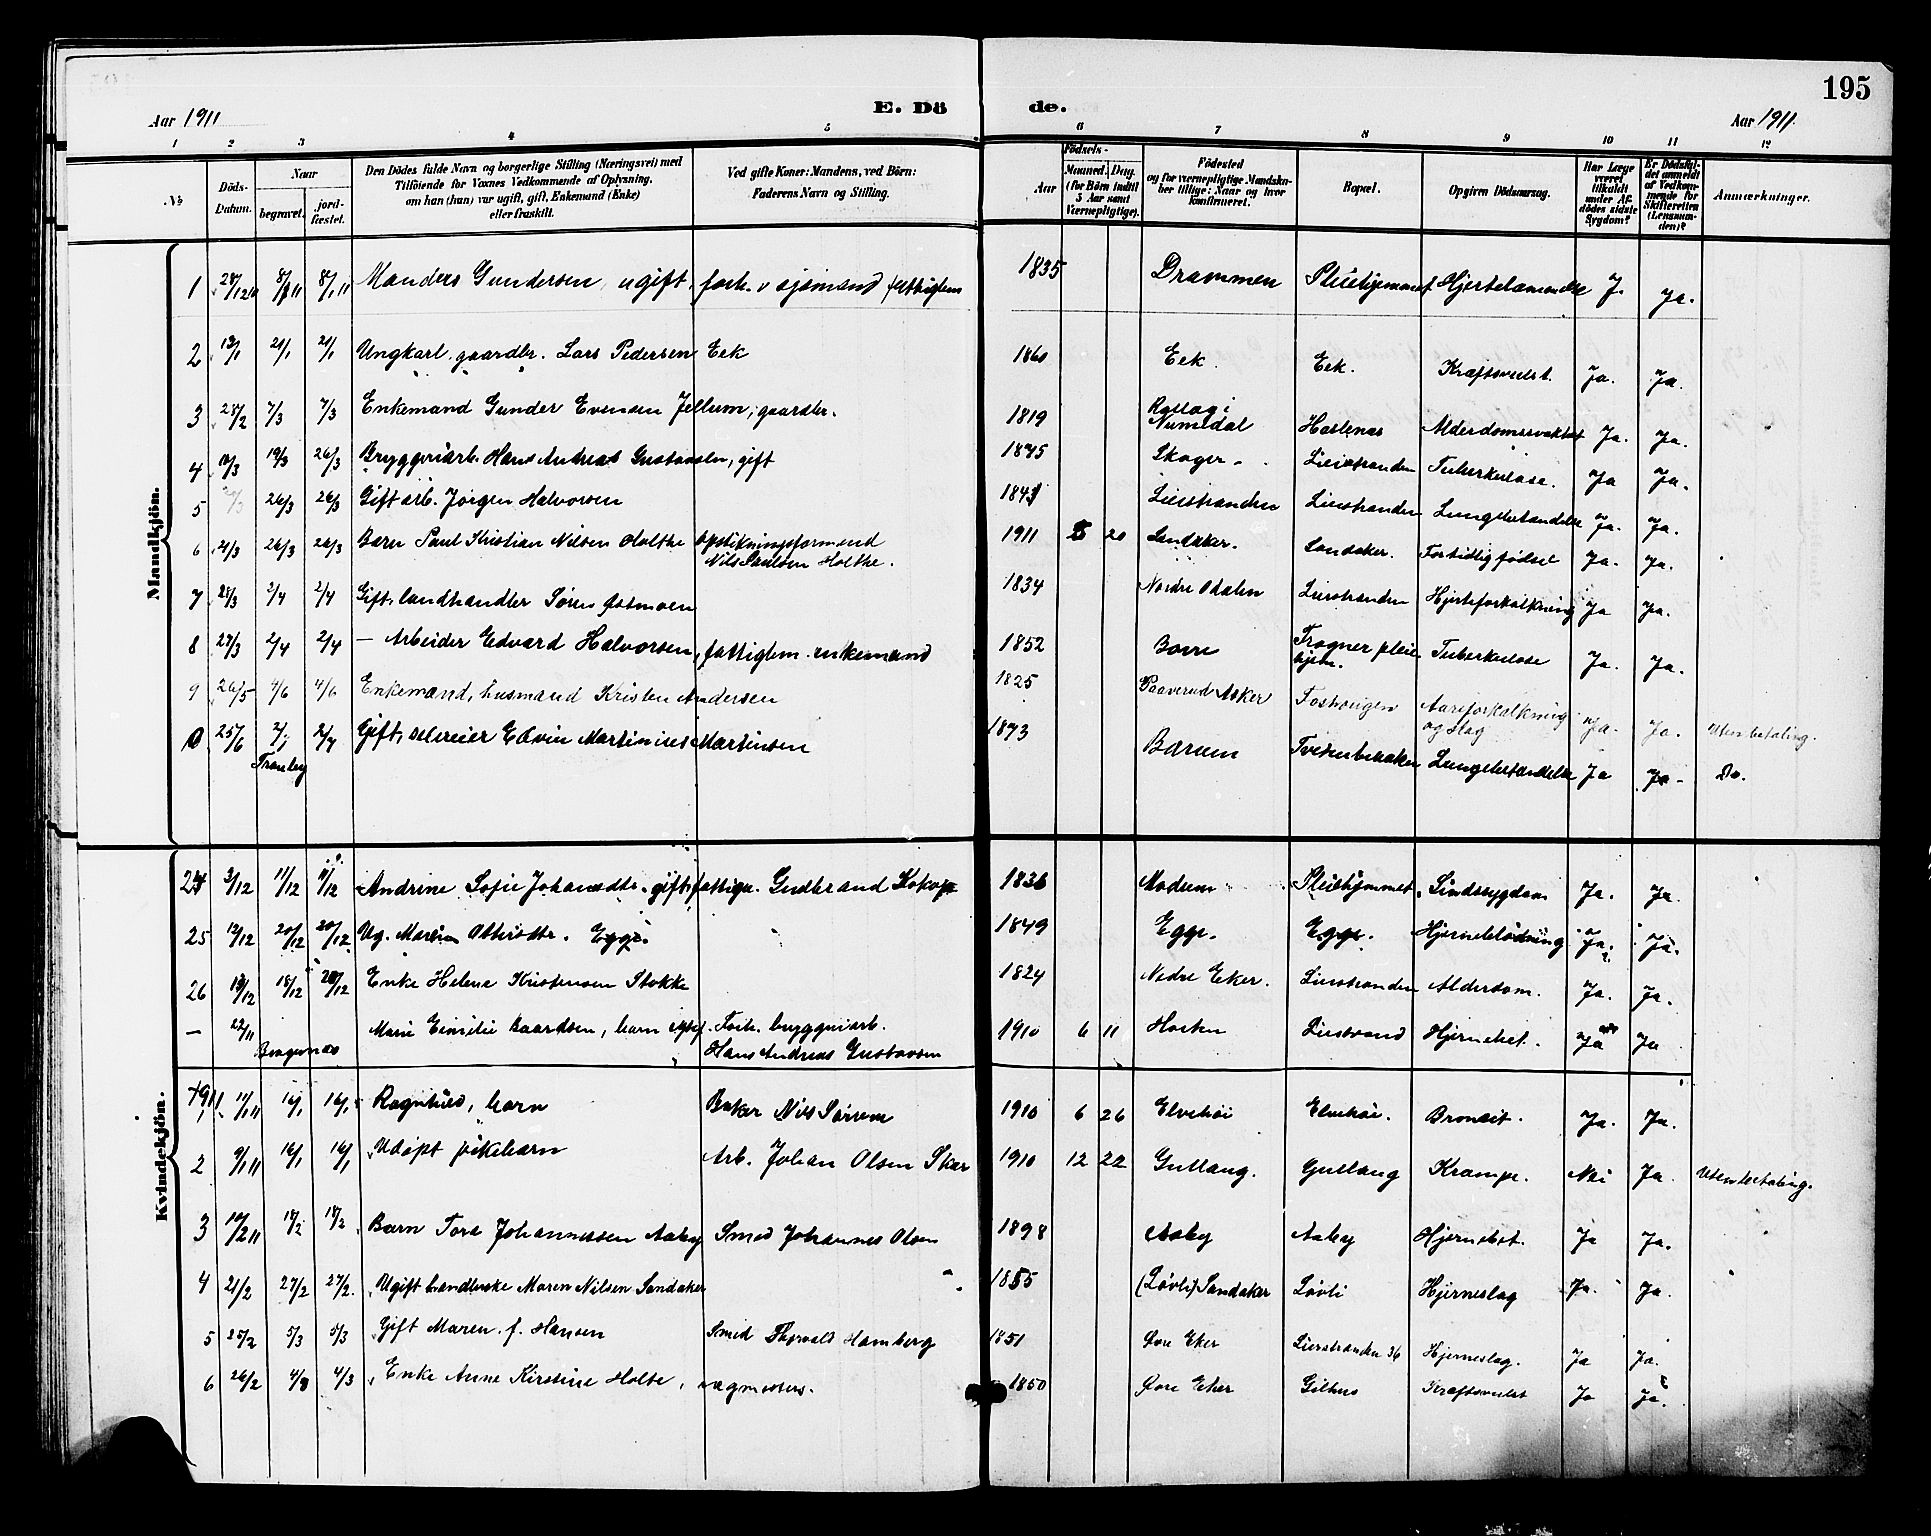 195
E. Dö de.
Aar 1911
Aar 1911.
1 2 3 4 5 6 7 8 9 10 11 12
No
Döds-Datum.
Naar
begravet.
jord-fæstet.
Den Dödes fulde Navn og borgerlige Stilling (Næringsvei) med
Tilföiende for Voxnes Vedkommende af Oplysning,
om han (hun) var ugift, gift, Enkemand (Enke)
eller fraskilt.
Ved gifte Koner: Mandens, ved Börn:
Faderens Navn og Stilling.
Födsels-
Aar
Maaned. Dag.
(for Börn indtil
5 Aar samt
Værnepligtige).
Födested
og for værnepligtige Mandska-
ber tillige: Naar og hvor
konfirmeret.
Bopæl.
Opgiven Dödsaarsag.
Har Læge
været
tilkaldt
under Af-
dödes sidste
Sygdom?
Er Dödsfal-
det anmeldt
af Vedkom-
mende for
Skifteretten
(Lensman-
den)?
Anmærkninger.
Mandkjön.
1 28/12 8/1 11 8/1 11 Gundersen, ugift, forh. v sjömand fattiglem 1835 Drammen Pleiehjemmet J. Ja.
2 13/1 21/1 21/1 Ungkarl, gaardbr. Lars Pedersen Eek 1860 Eek Eek. Kræftsvulst. Ja. Ja.
3 28/2 7/3 7/3 Enkemand Gunder Evensen Jellum, gaardbr. 1819 Rollag i Numedal Haslenas Alderdomssvakhet Ja. Ja.
4 12/3 19/3 26/3 Bryggeriarb. Hans Andreas Gustavsen, gift 1875 Skoger Lierstranden Tuberkulose. Ja Ja.
5 26/3 26/3 Gift arb. Jörgen Halvorsen 1841 Lierstranden Lierstranden Lungebetændelse Ja. Ja.
6 21/3 26/3 26/3 Barn Paul Kristian Nilsen Holthe Opstikningsformand
Nils Paulsen Holthe. 1911 20 Landaker. Landaker. Fortidlig födsel Ja. Ja.
7 28/3 2/4 2/4 Gift, landhandler Sören Ostmoen 1834 Nordre Odalen Lierstranden Hjerteforkalkning Ja Ja.
8 27/3 2/4 2/4 — Arbeider Edvard Halvorsen, fattiglem. enkemand 1852 Borre Frogner pleie
hjem. Tuberkulose Ja. Ja.
9 26/5 4/6 4/6 Enkemand, husmand Kristen Andersen 1825 Asker Foshaugen Aareforkalkning
og slag Ja. Ja. Uten betaling.
10 25/6 2/7 2/7 Gift, seleier Edvin Martinius Martinsen 1873 Bærum Tveitenbakken Lungebetændelse Ja Ja Do.
Tranby
Kvindekjön.
24 3/12 11/12 11/12 Andrine Sofie Johansdtr. gift, fattigu. Gudbrand 1836 Modum Pleiehjemmet Sindssygdom Ja. Ja
25 12/12 20/12 20/12 Ug. Maren Ottersdtr. Egge. 1849 Egge. Egge. Hjerneblödning Ja. Ja.
26 13/12 18/12 20/12 Enke Helene Kristensen Stokke 1824 Nedre Eker. Lierstranden Alderdom. Ja. Ja.
— 22/11 Bragernæs Marie Emilie Baardsen, barn Forh. bryggeriarb.
Hans Andreas Gustavsen 1910 6 11 Horten Lierstrand Hjernebet. Ja Ja
1911
1 11/1 11 16/1 16/1 Ragnhild, barn Baker Nils Sörum 1910 6 26 Elvehöi Elvehöi. Bronkit. Ja. Ja.
2 9/1 11 16/1 16/1 Udöpt pikebarn Arb. Johan Olsen Skar 1910 12 22 Gullaug. Gullaug Krampe. Nei Ja Uten betaling.
3 12/2 11 18/2 18/2 Barn Tora Johannessen Aaby Smed Johannes Olsen 1898 Aaby Aaby Hjernebet. Ja Ja.
4 21/2 27/2 27/2 Ugift handlerske Maren Nilsen Landaker 1855 (Lövli) Landaker Lövli Hjerneslag Ja. Ja.
5 25/2 5/3 5/3 Gift Maren f. Hansen Smed Thorvald Hamberg 1851 Övre Eker Lierstranden 36 Hjerneslag. Ja Ja.
6 26/2 4/3 4/3 Enke Anne Kirstine Holte, vagmesters. 1850 Övre Eker Gilhus Kræftsvulst Ja Ja.